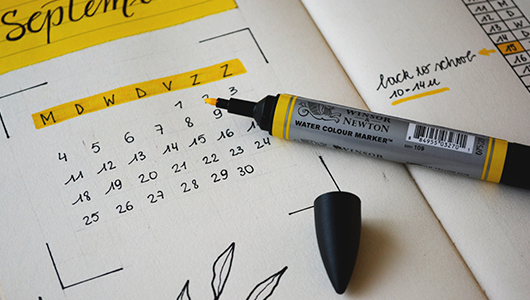 Septem
M D W D V Z Z
1 2 3
4 5 6 7 8 9
11 12 13 14 15 16
18 19 20 21 22 23 24
25 26 27 28 29 30
WINSOR
& NEWTON
WATER COLOUR MARKER™
WINSOR
109
back to school
10-14u
11
12 D
13 W
14 D
15
16